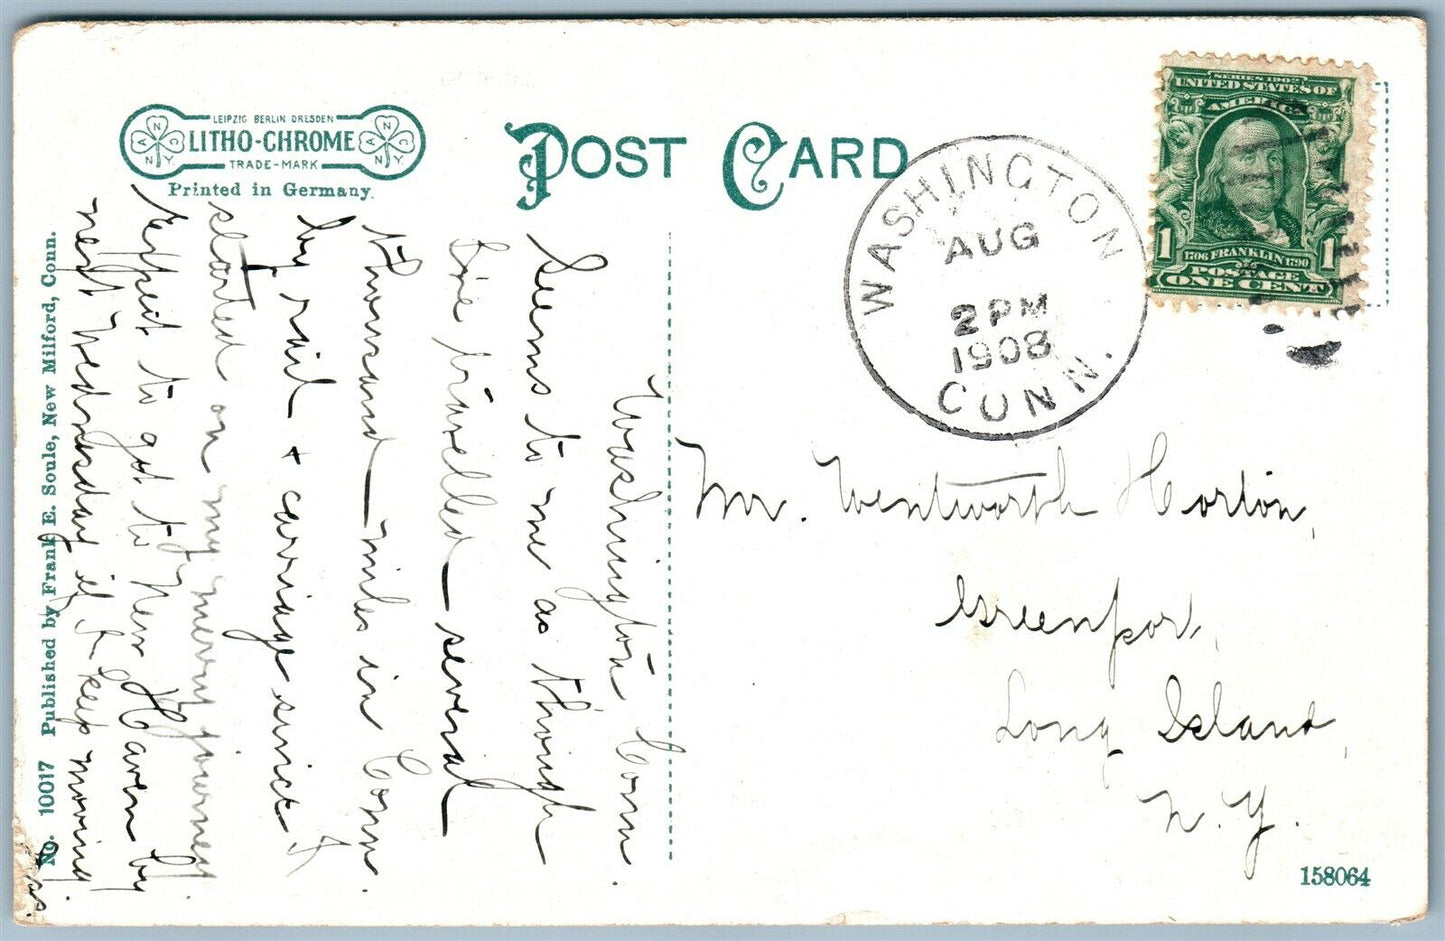 LEIPZIG BERLIN DRESDEN
LITHO-CHROME
TRADE-MARK
N A C N Y
N A C N Y
Printed in Germany.
POST CARD
WASHINGTON
AUG
2 PM
1908
CONN.
SERIES 1902
UNITED STATES OF
AMERICA
1 1706 FRANKLIN 1790 1
POSTAGE
ONE CENT
Washington Conn.
Seems to me as though
I've travelled several
thousand miles in Conn.
by rail + carriage since I
started on my merry journey
Expect to get to New Haven by
next Wednesday if I keep moving
Mr. Wentworth Horton,
Greenport,
Long Island,
N.Y.
No. 10017 Published by Frank E. Soule, New Milford, Conn.
158064